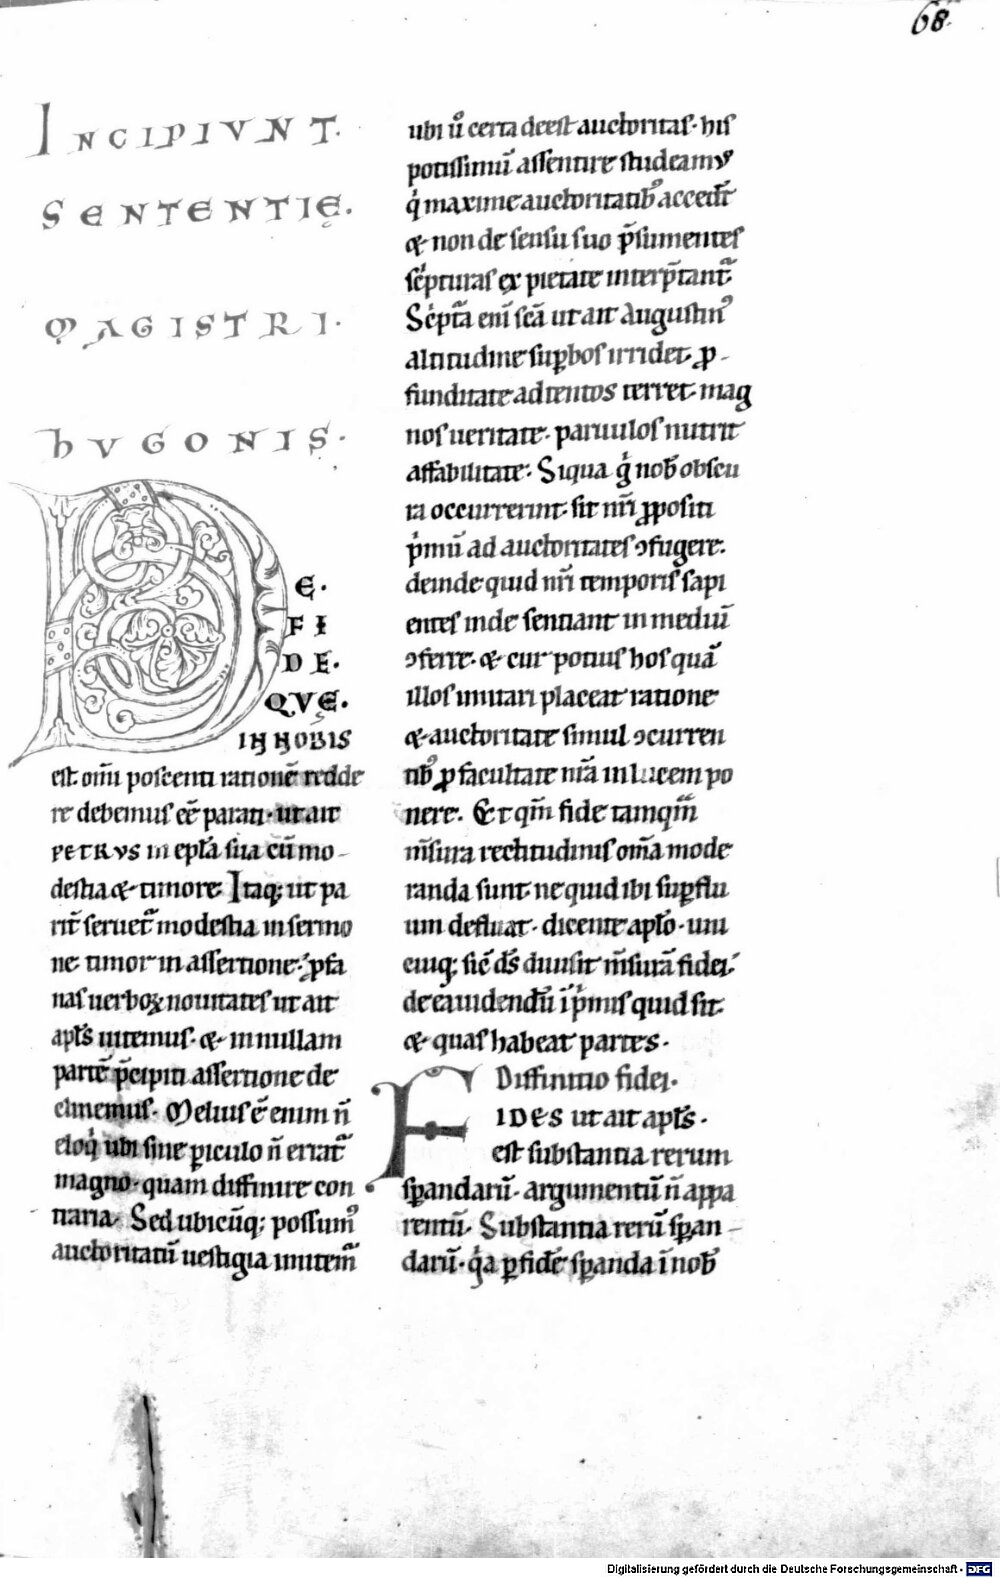 68.
INCIPIVNT.
SENTENTIĘ.
MAGISTRI.
hVGONIS.
DE.
FI
DE.
QVĘ.
IN NOBIS
est om̄i poscenti rationē redde
re debemus eē̄ parati. ut ait
PETRVS in ep̄la sua cū mo-
destia & timore. Itaq; ut pa
rit̄ seruet̄ modestia in sermo
ne. timor in assertione. ꝓfa
nas uerboꝝ nouitates ut ait
apl̄s uitemus. & in nullam
partē p̄cipiti assertione de
clinemus. Melius ē enim n̄
eloq̇ ubi sine ꝑiculo n̄ errat̄
magno. quam diffinire con
traria. Sed ubicūq; possum᷒
auctoritatū uestigia imitem̄
ubi ů certa deest auctoritas. his
potissimū assentire studeam᷒
q̇ maxime auctoritatib᷒ accedt̄
& non de sensu suo p̄sumentes
sċpturas ex pietate interp̄tant̄
Sċpt̄a eni̅ sc̄a ut ait Augustin᷒
altitudine suꝑbos irridet. ꝓ-
funditate adtentos terret. mag
nos ueritate. paruulos nutrit
affabilitate. Siqua g̊ nob̄ obscu
ra occurrerint. sit nr̄i ꝓpositi
ṗmū ad auctoritates ↄfugere.
deinde quid nr̄i temporis sapi
entes inde sentiant in mediū
ↄferre. & cur potius hos quā
illos imitari placeat ratione
& auctoritate simul ↄcurren
tib᷒ ꝓ facultate nr̄a in lucem po
nere. Et qm̄ fide tamqm̄
m̄sura rectitudinis om̄a mode
randa sunt. ne quid ibi suꝑflu
um defluat. dicente apl̄o. uni
cuiq; sic̄ ds̄ diuisit m̄surā fidei.
de ea uidendū iṗmis quid sit.
& quas habeat partes.
Diffinitio fidei.
FIDES ut ait apl̄s.
est substantia rerum
sꝑandarū. argumentū n̄ appa
rentū. Substantia rerū sꝑan-
darū. q̇a ꝑ fidē sꝑanda i̅ nob̄
Digitalisierung gefördert durch die Deutsche Forschungsgemeinschaft - DFG